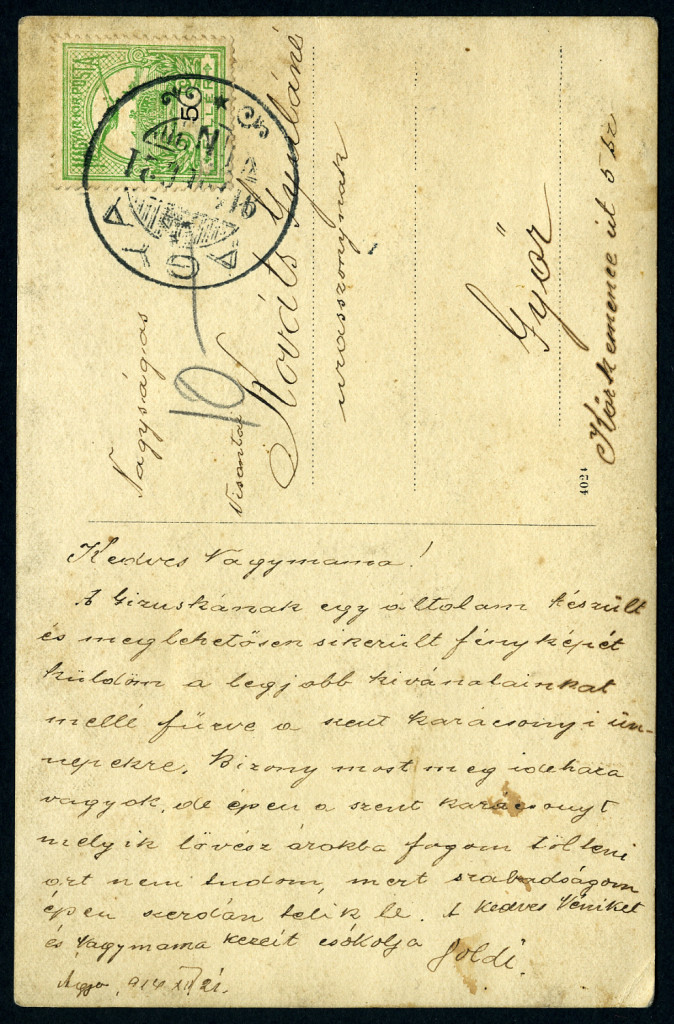 MAGYAR KIR. POSTA
5
FILLÉR
AGYA
Nagyságos
Kováts Gyuláné
urasszonynak
Győr
Körkemence út 5 sz
10
4024
Kedves Nagymama!
A Gizuskának egy általam készült
és meglehetősen sikerült fényképét
küldöm a legjobb kivánalainkat
mellé fűzve a szent karácsonyi ün-
nepekre. Bizony most meg idehaza
vagyok, de épen a szent karácsonyt
melyik lövész árokba fogom tölteni
azt nem tudom, mert szabadságom
épen szerdán telik le. A kedves Néniket
és Nagymama kezeit csókolja
Agya, 914 XII/21.